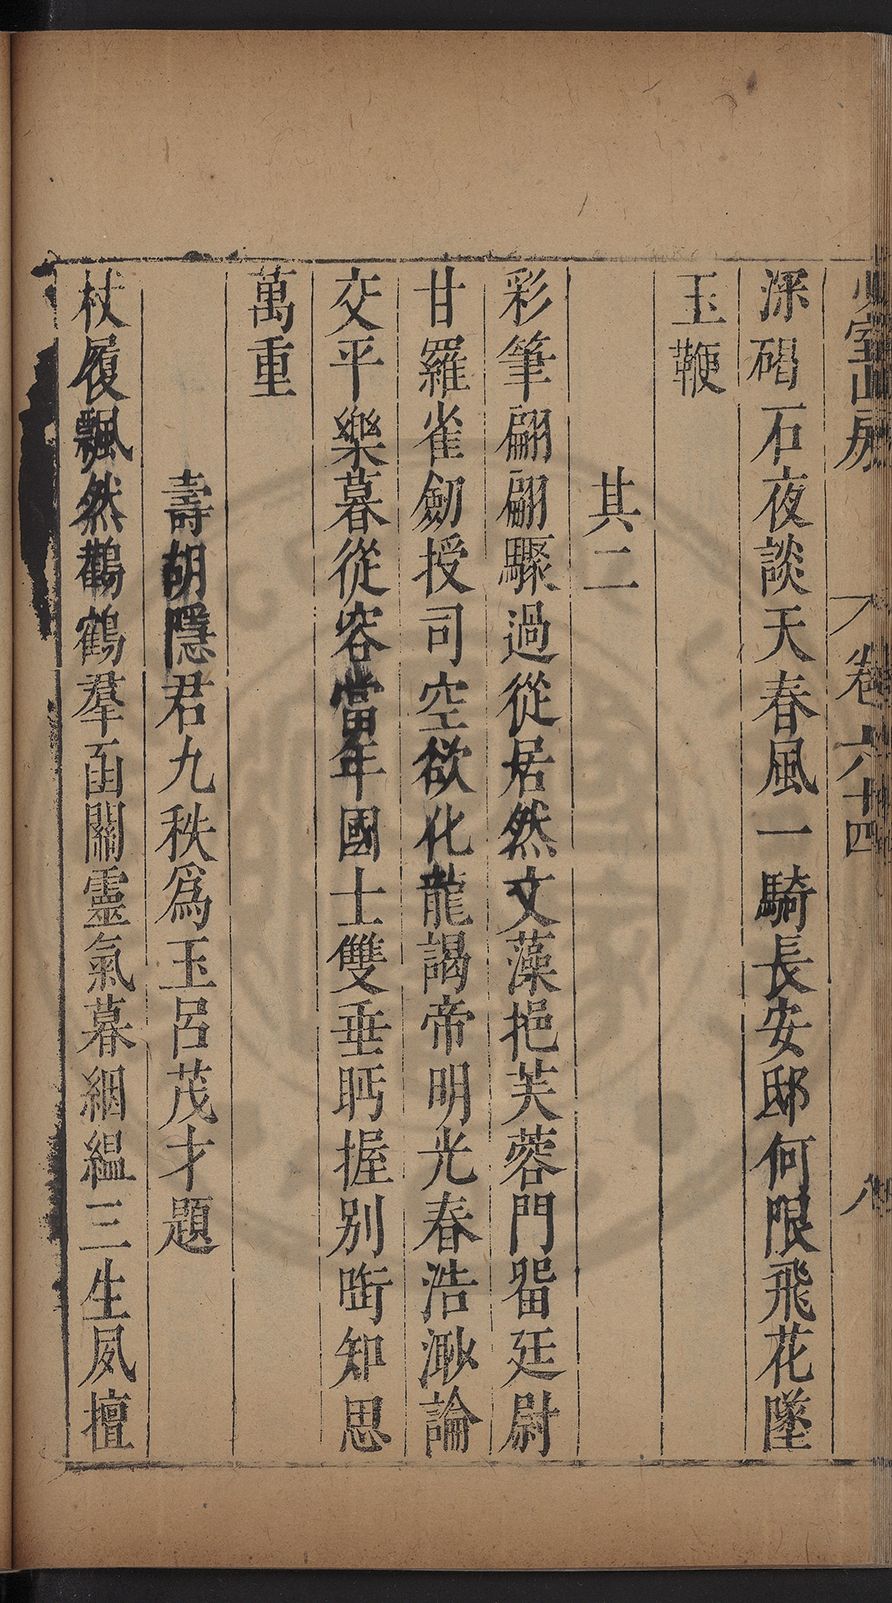 少室山房 卷六十四 八
深碣石夜談天春風一騎長安邸何限飛花墜
玉鞭
其二
彩筆翩翩驟過從居然文藻挹芙蓉門畱廷尉
甘羅雀劒授司空欲化龍謁帝明光春浩渺論
交平樂暮從容當年國士雙垂眄握別衘知思
萬重
壽胡隱君九秩爲玉呂茂才題
杖履飄然鸛鶴羣函關靈氣暮絪縕三生夙擅